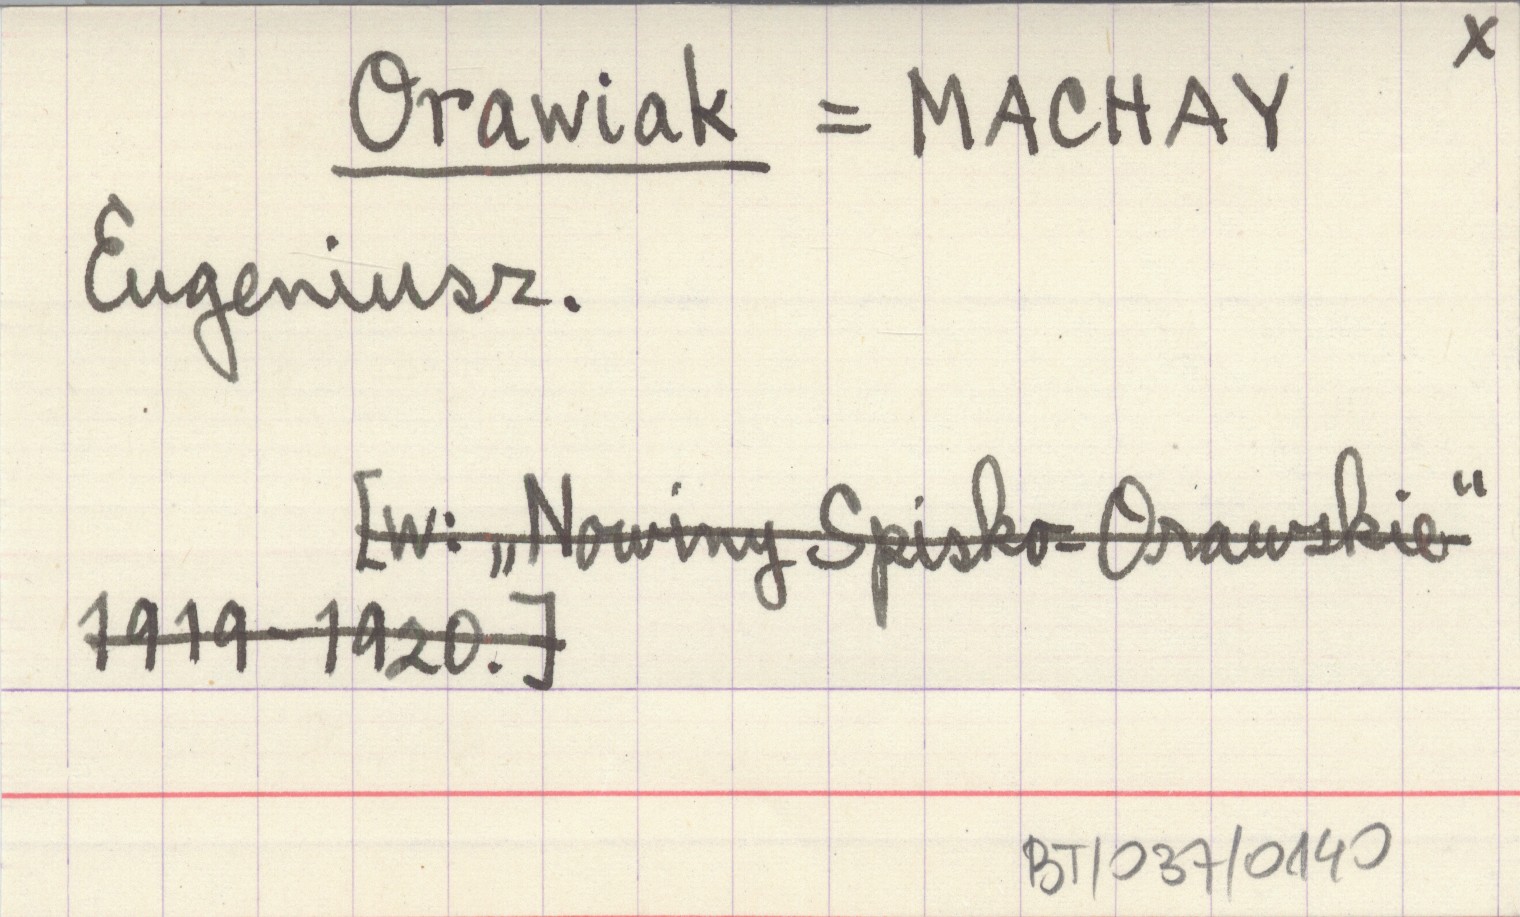 x
Orawiak = MACHAY
Eugeniusz.
[w: „Nowiny Spisko=Orawskie“
1919-1920.]
BT/037/0140